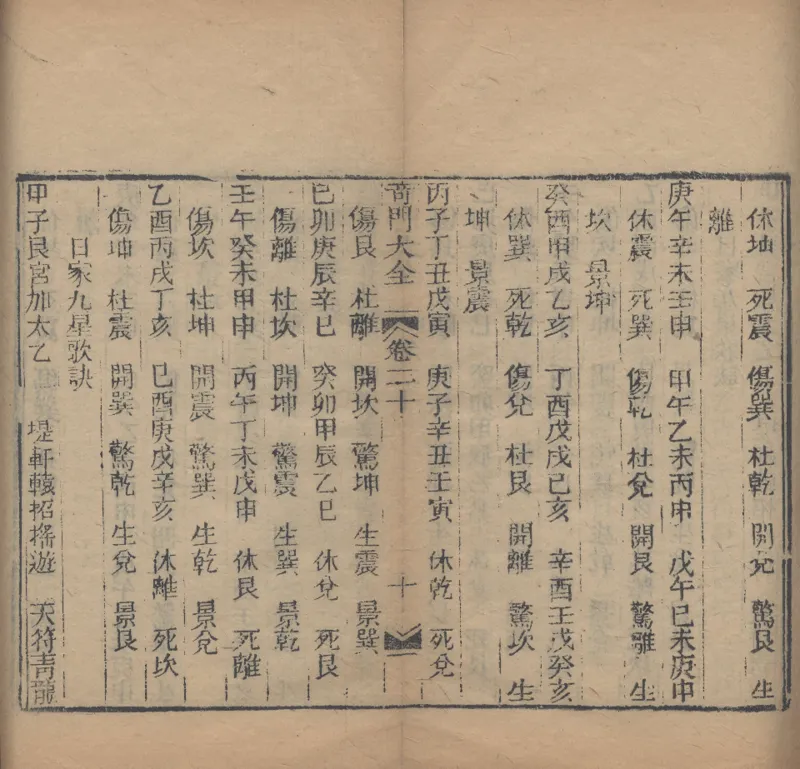 休坤 死震 傷巽 杜乾 開兌 驚艮 生
離
庚午辛未壬申 甲午乙未丙申 戊午己未庚申
休震 死巽 傷乾 杜兌 開艮 驚離 生
坎 景坤
癸酉甲戌乙亥 丁酉戊戌己亥 辛酉壬戌癸亥
休巽 死乾 傷兌 杜艮 開離 驚坎 生
坤 景震
丙子丁丑戊寅 庚子辛丑壬寅 休乾 死兌
奇門大全 卷二十 十
傷艮 杜離 開坎 驚坤 生震 景巽
己卯庚辰辛巳 癸卯甲辰乙巳 休兌 死艮
傷離 杜坎 開坤 驚震 生巽 景乾
壬午癸未甲申 丙午丁未戊申 休艮 死離
傷坎 杜坤 開震 驚巽 生乾 景兌
乙酉丙戌丁亥 己酉庚戌辛亥 休離 死坎
傷坤 杜震 開巽 驚乾 生兌 景艮
日家九星歌訣
甲子艮宮加太乙 堤軒轅招搖遊 天符青龍